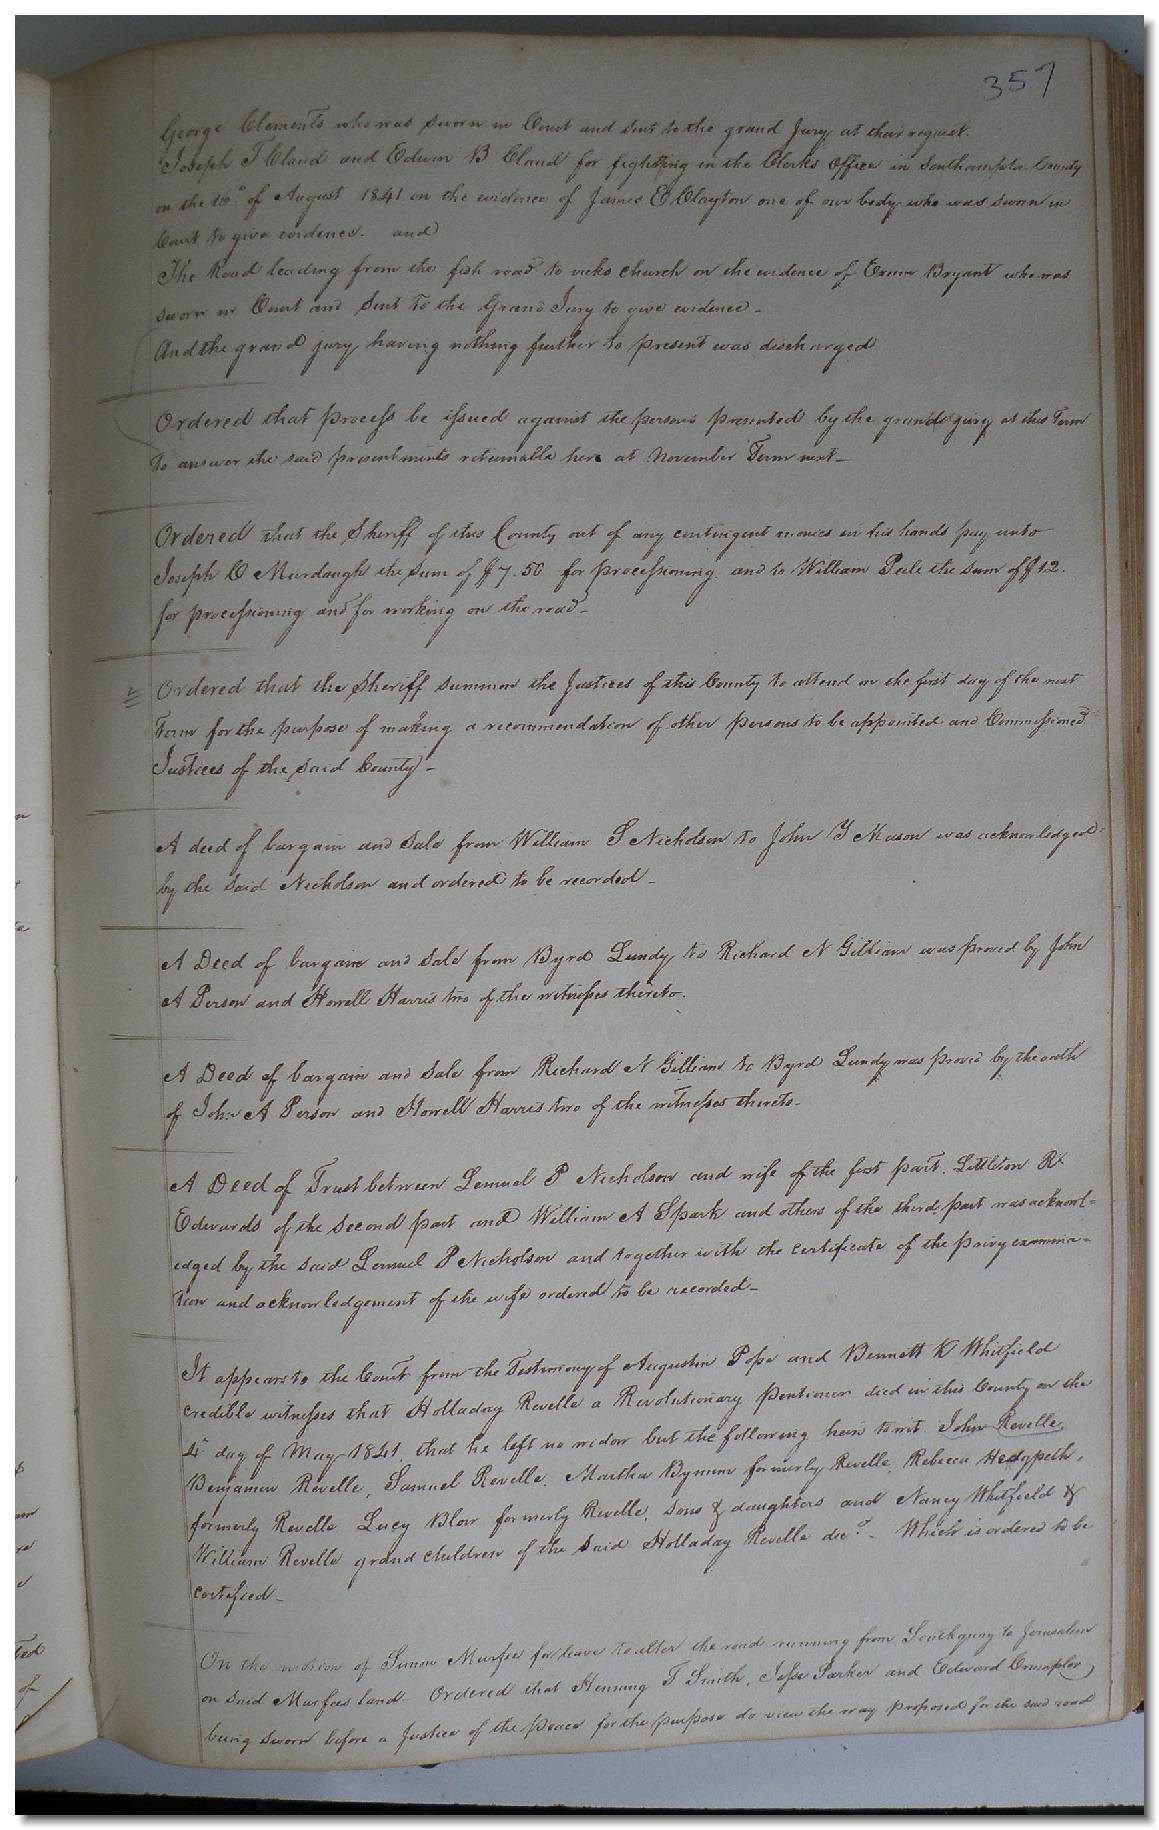 357
George Clements who was sworn in Court and sent to the grand Jury at their request.
Joseph T Claud and Edwin B Claud for fighting in the Clerks Office in Southampton County
on the 16th of August 1841 on the evidence of James E Clayton one of our body who was sworn in
Court to give evidence. and
The Road leading from the fish road to vicks church on the evidence of Bryant who was
sworn in Court and sent to the Grand Jury to give evidence -
And the grand jury having nothing further to present was discharged
Ordered that process be issued against the persons presented by the grand jury at this Term
to answer the said presentments returnable here at November Term next -
Ordered that the Sheriff of this County out of any contingent monies in his hands pay unto
Joseph Murdaugh the sum of $7.50 for processioning and to William Peele the sum of $12.
for processioning and for working on the road -
Ordered that the Sheriff summon the Justices of this County to attend on the first day of the next
Term for the purpose of making a recommendation of other persons to be appointed and Commissioned
Justices of the said County -
A deed of bargain and sale from William S Nicholson to John Y Mason was acknowledged
by the said Nicholson and ordered to be recorded -
A Deed of bargain and sale from Byrd Lundy to Richard N Gilliam was proved by John
A Person and Howell Harris two of the witnesses thereto.
A Deed of bargain and sale from Richard N Gilliam to Byrd Lundy was proved by the oath
of John A Person and Howell Harris two of the witnesses thereto -
A Deed of Trust between Lemuel P Nicholson and wife of the first part, Littleton R
Edwards of the second part and William A Spark and others of the third part was acknowl=
edged by the said Lemuel P Nicholson and together with the certificate of the privy examina=
tion and acknowledgement of the wife ordered to be recorded -
It appears to the Court from the Testimony of Augustin Pope and Bennett K Whitfield
credible witnesses that Holladay Revelle a Revolutionary Pentioner died in this County on the
4th day of May 1841, that he left no widow but the following heirs towit. John Revelle,
Benjamin Revelle, Samuel Revelle, Martha Bynum formerly Revelle, Rebecca Hedgpeth,
formerly Revelle Lucy Blow formerly Revelle, sons & daughters and Nancy Whitfield &
William Revelle grand children of the said Holladay Revelle decd - Which is ordered to be
certified -
On the motion of Simon Murfee for leave to alter the road running from Southquay to Jerusalem
on said Murfees land - Ordered that Henning T Smith, Jesse Parker and Edward Crumpler
being sworn before a Justice of the peace for the purpose do view the way proposed for the said road